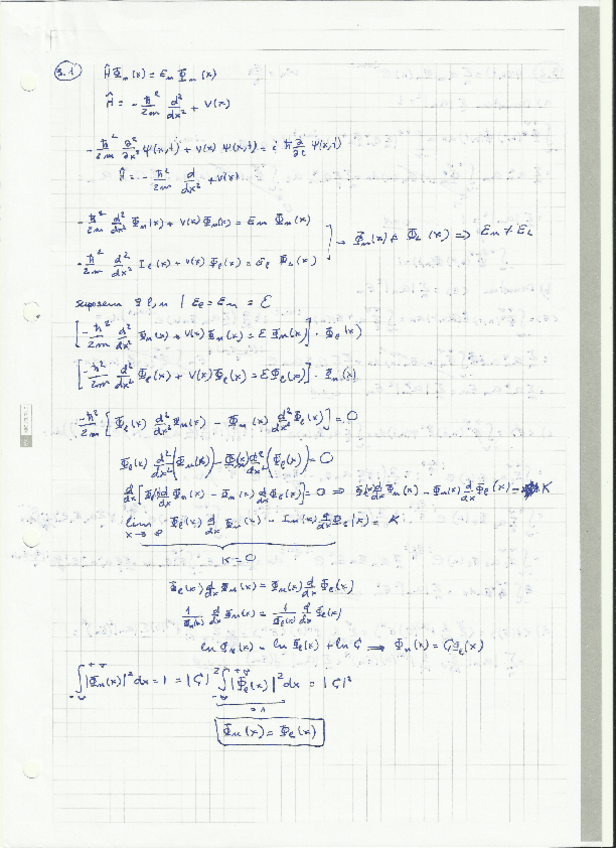 3.1 Ĥ Φn(x) = En Φn(x)
Ĥ = - ħ²/2m d²/dx² + V(x)
- ħ²/2m ∂²/∂x² Ψ(x,t) + V(x) Ψ(x,t) = i ħ ∂/∂t Ψ(x,t)
Ĥ = - ħ²/2m d/dx² + V(x)
- ħ²/2m d²/dx² Φn(x) + V(x) Φn(x) = En Φn(x)
- ħ²/2m d²/dx² Φl(x) + V(x) Φl(x) = El Φl(x) → Φn(x) ≠ Φl(x) ⇒ En ≠ El
suposem ∃ l,n | El = En = E
[- ħ²/2m d²/dx² Φn(x) + V(x) Φn(x) = E Φn(x)] · Φl(x)
[- ħ²/2m d²/dx² Φl(x) + V(x) Φl(x) = E Φl(x)] · Φn(x)
- ħ²/2m [Φl(x) d²/dx² Φn(x) - Φn(x) d²/dx² Φl(x)] = 0
Φl(x) d²/dx² (Φn(x)) - Φn(x) d²/dx² (Φl(x)) = 0
d/dx [Φl(x) d/dx Φn(x) - Φn(x) d/dx Φl(x)] = 0 ⇒ Φl(x) d/dx Φn(x) - Φn(x) d/dx Φl(x) = K
lim x→∞ Φl(x) d/dx Φn(x) - Φn(x) d/dx Φl(x) = K
K = 0
Φl(x) d/dx Φn(x) = Φn(x) d/dx Φl(x)
1/Φn(x) d/dx Φn(x) = 1/Φl(x) d/dx Φl(x)
ln Φn(x) = ln Φl(x) + ln G ⇒ Φn(x) = G Φl(x)
∫-∞+∞ |Φn(x)|² dx = 1 = |G|² ∫-∞+∞ |Φl(x)|² dx = |G|²
= 1
Φn(x) = Φl(x)